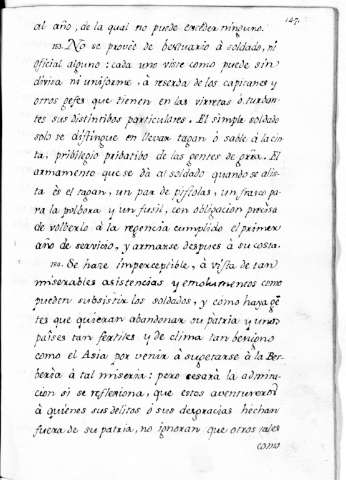 147.
al año, de la qual no puede exceder ninguno.
183. No se provèe de bestuario à soldado, ni
oficial alguno: cada uno viste como puede sin
divisa ni uniforme, à reserba de los capitanes y
otros gefes que tienen en las virretas ò turban-
tes sus distintibos particulares. El simple soldado
solo se distingue en llevar tagan ò sable à la cin-
ta, pribilegio pribatibo de las gentes de grrà. El
armamento que se dà al soldado quando se alis-
ta es el tagan, un par de pistolas, un frasco pa-
ra la polbora y un fusil, con obligacion precisa
de volberlo à la regencia cumplido el primer
año de servicio, y armarse despues à su costa.
184. Se haze imperceptible, à vista de tan
miserables asistencias y emolumentos como
pueden subsistir los soldados, y como haya gẽ
tes que quieran abandonar su patria y unos
paises tan fertiles y de clima tan benigno
como el Asia por venir à sugetarse à la Ber-
berìa à tal miseria: pero cesarà la admira-
cion si se reflexiona, que estos aventureros
à quienes sus delitos ò sus desgracias hechan
fuera de su patria, no ignoran que otros tales
como